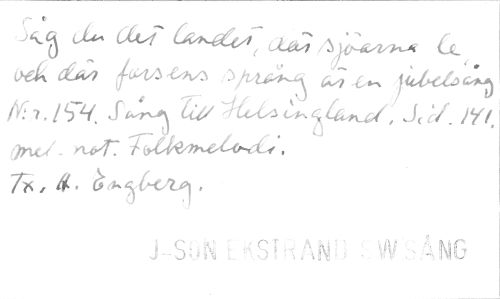 Såg du det landet, där sjöarna le,
och där forsens språng är en jubelsång
N:r. 154. Sång till Helsingland. Sid. 141.
mel. not. Folkmelodi.
Tx. H. Engberg.
J-SON EKSTRAND SW SÅNG